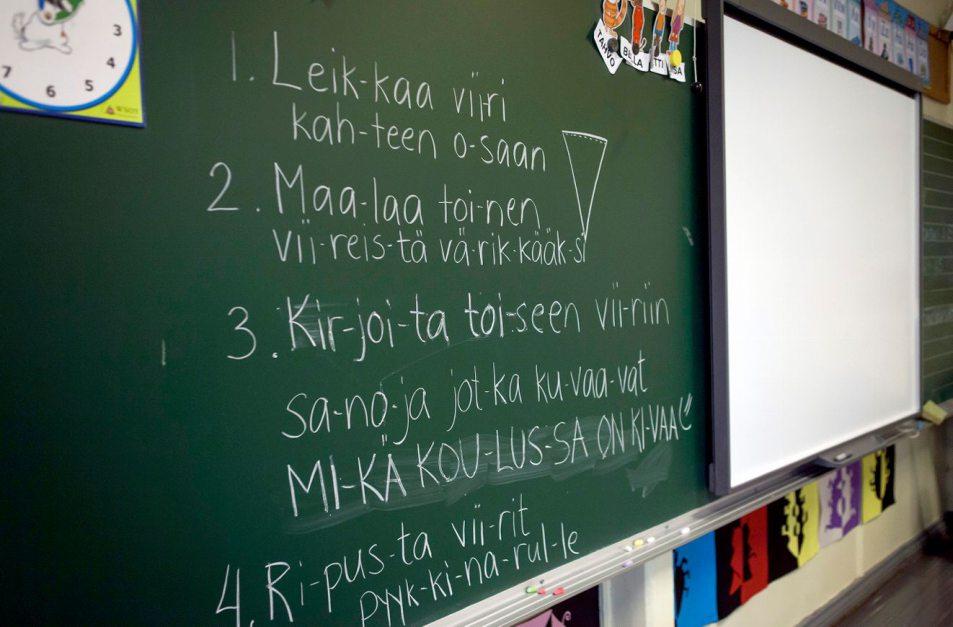 3
4
5
6
7
TAHVO
1. Leik-kaa vii-ri
kah-teen o-saan
2. Maa-laa toi-nen
vii-reis-tä vä-rik-kääk-si
3. Kir-joi-ta toi-seen vii-riin
sa-no-ja jot-ka ku-vaa-vat
MI-KÄ KOU-LUS-SA ON KI-VAA
4. Ri-pus-ta vii-rit
pyyk-ki-na-rul-le